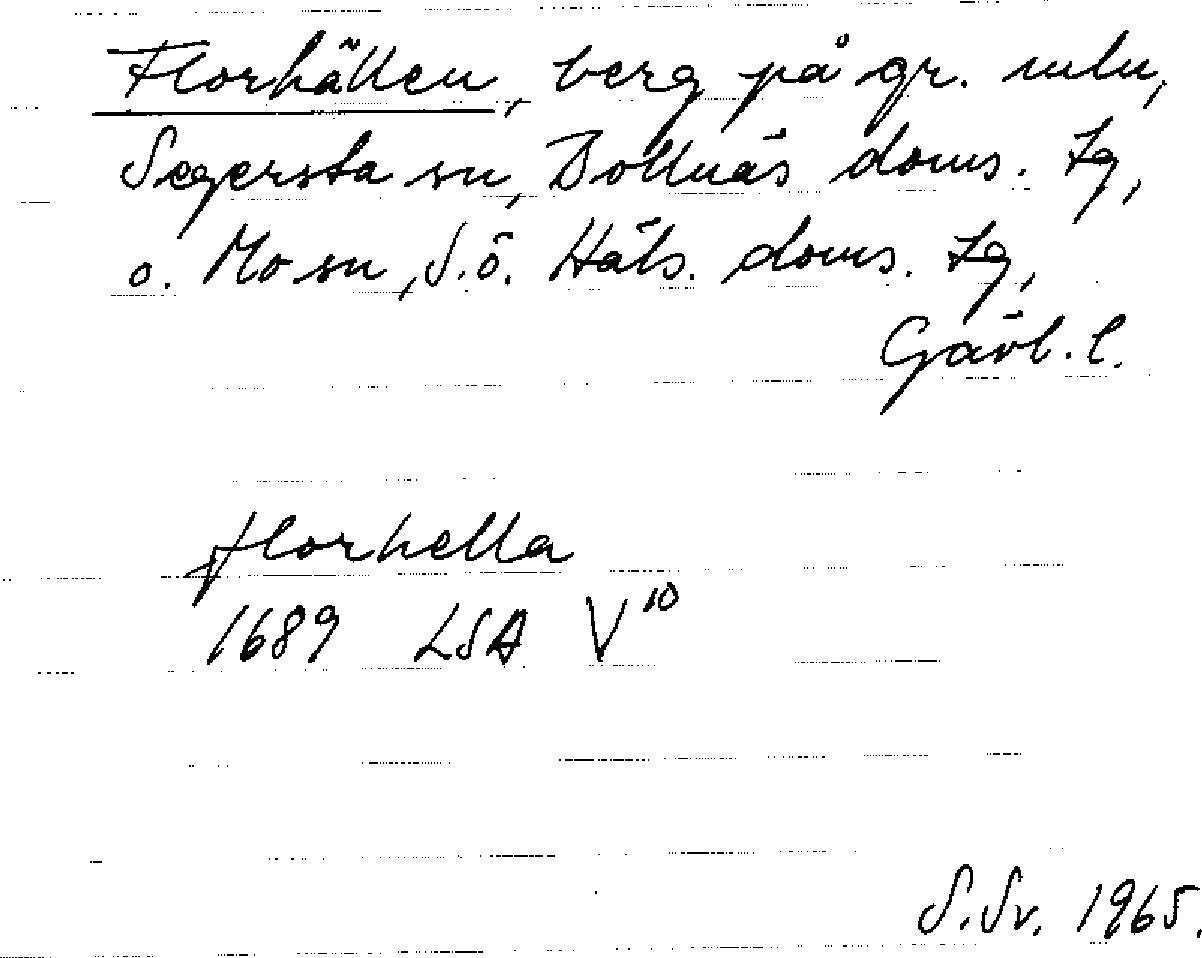 Florhällen, berg på gr. mln,
Segersta sn, Bollnäs doms. tg,
o. Mo sn, S.ö. Häls. doms. tg,
Gävl. l.
florhella
1689 LSA V¹⁰
S.Sv. 1965.